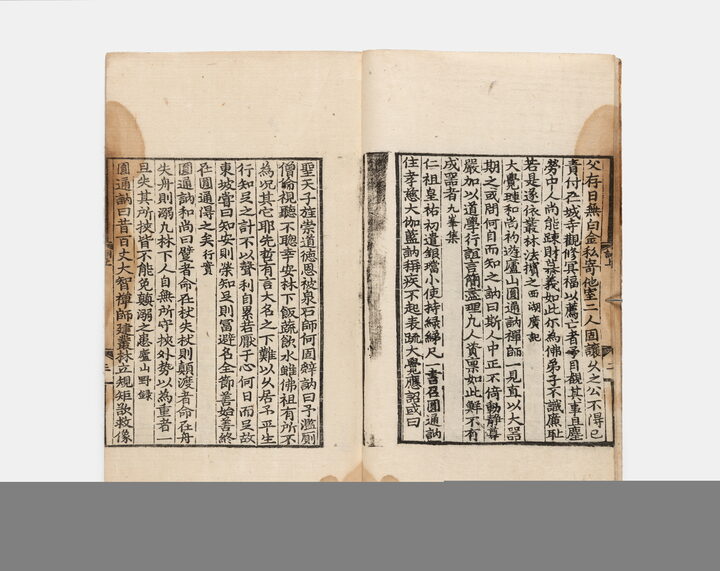 父存日無白金私寄他室二人固讓久之公不得已
責付在城寺觀修冥福以薦亡者予目覩其事且塵
勞中人尚能踈財慕義如此尔為佛弟子不識廉恥
若是遂依叢林法擯之西湖廣記
大覺璉和尚初遊廬山圓通訥禪師一見直以大器
期之或問何自而知之訥曰斯人中正不倚動靜尊
嚴加以道學行誼言簡盡理凡人資稟如此鮮不有
成器者九峯集
仁祖皇祐初遣銀璫小使持綠綈尺一書召圓通訥
住孝慈大伽藍訥稱疾不起表疏大覺應詔或曰
聖天子旌崇道德恩被泉石師何固辭訥曰予濫厠
僧倫視聽不聰幸安林下飯蔬飲水雖佛祖有所不
為况其它耶先哲有言大名之下難以久居予平生
行知足之計不以聲利自累若厭于心何日而足故
東坡嘗曰知安則榮知足則富避名全節善始善終
在圓通得之矣行實
圓通訥和尚曰躄者命在杖失杖則顛渡者命在舟
失舟則溺凡林下人自無所守挾外勢以為重者一
旦失其所挾皆不能免顛溺之患廬山野錄
圓通訥曰昔百丈大智禪師建叢林立規矩欲救像